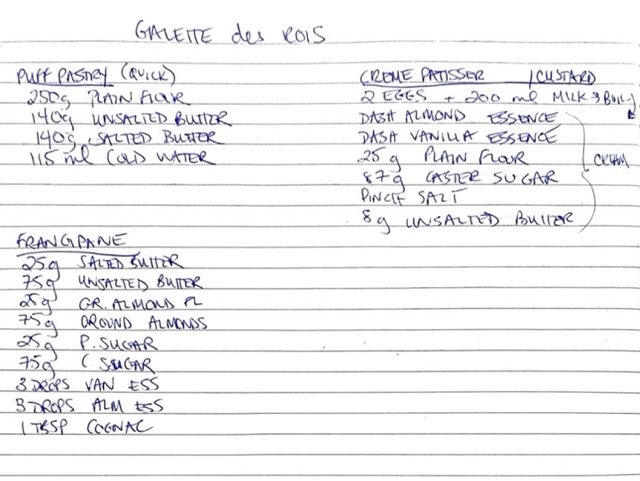 GALETTE des ROIS
PUFF PASTRY (QUICK)
250g PLAIN FLOUR
140g UNSALTED BUTTER
140g SALTED BUTTER
115 ml COLD WATER
CREME PATISSER / CUSTARD
2 EGGS + 200 ml MILK & BOIL
DASH ALMOND ESSENCE
DASH VANILLA ESSENCE
25g PLAIN FLOUR
87g CASTER SUGAR
PINCH SALT
8g UNSALTED BUTTER
CREAM
FRANGPANE
25g SALTED BUTTER
75g UNSALTED BUTTER
25g GR. ALMOND FL
75g GROUND ALMONDS
25g P. SUGAR
75g C SUGAR
3 DROPS VAN ESS
3 DROPS ALM ESS
1 TBSP COGNAC